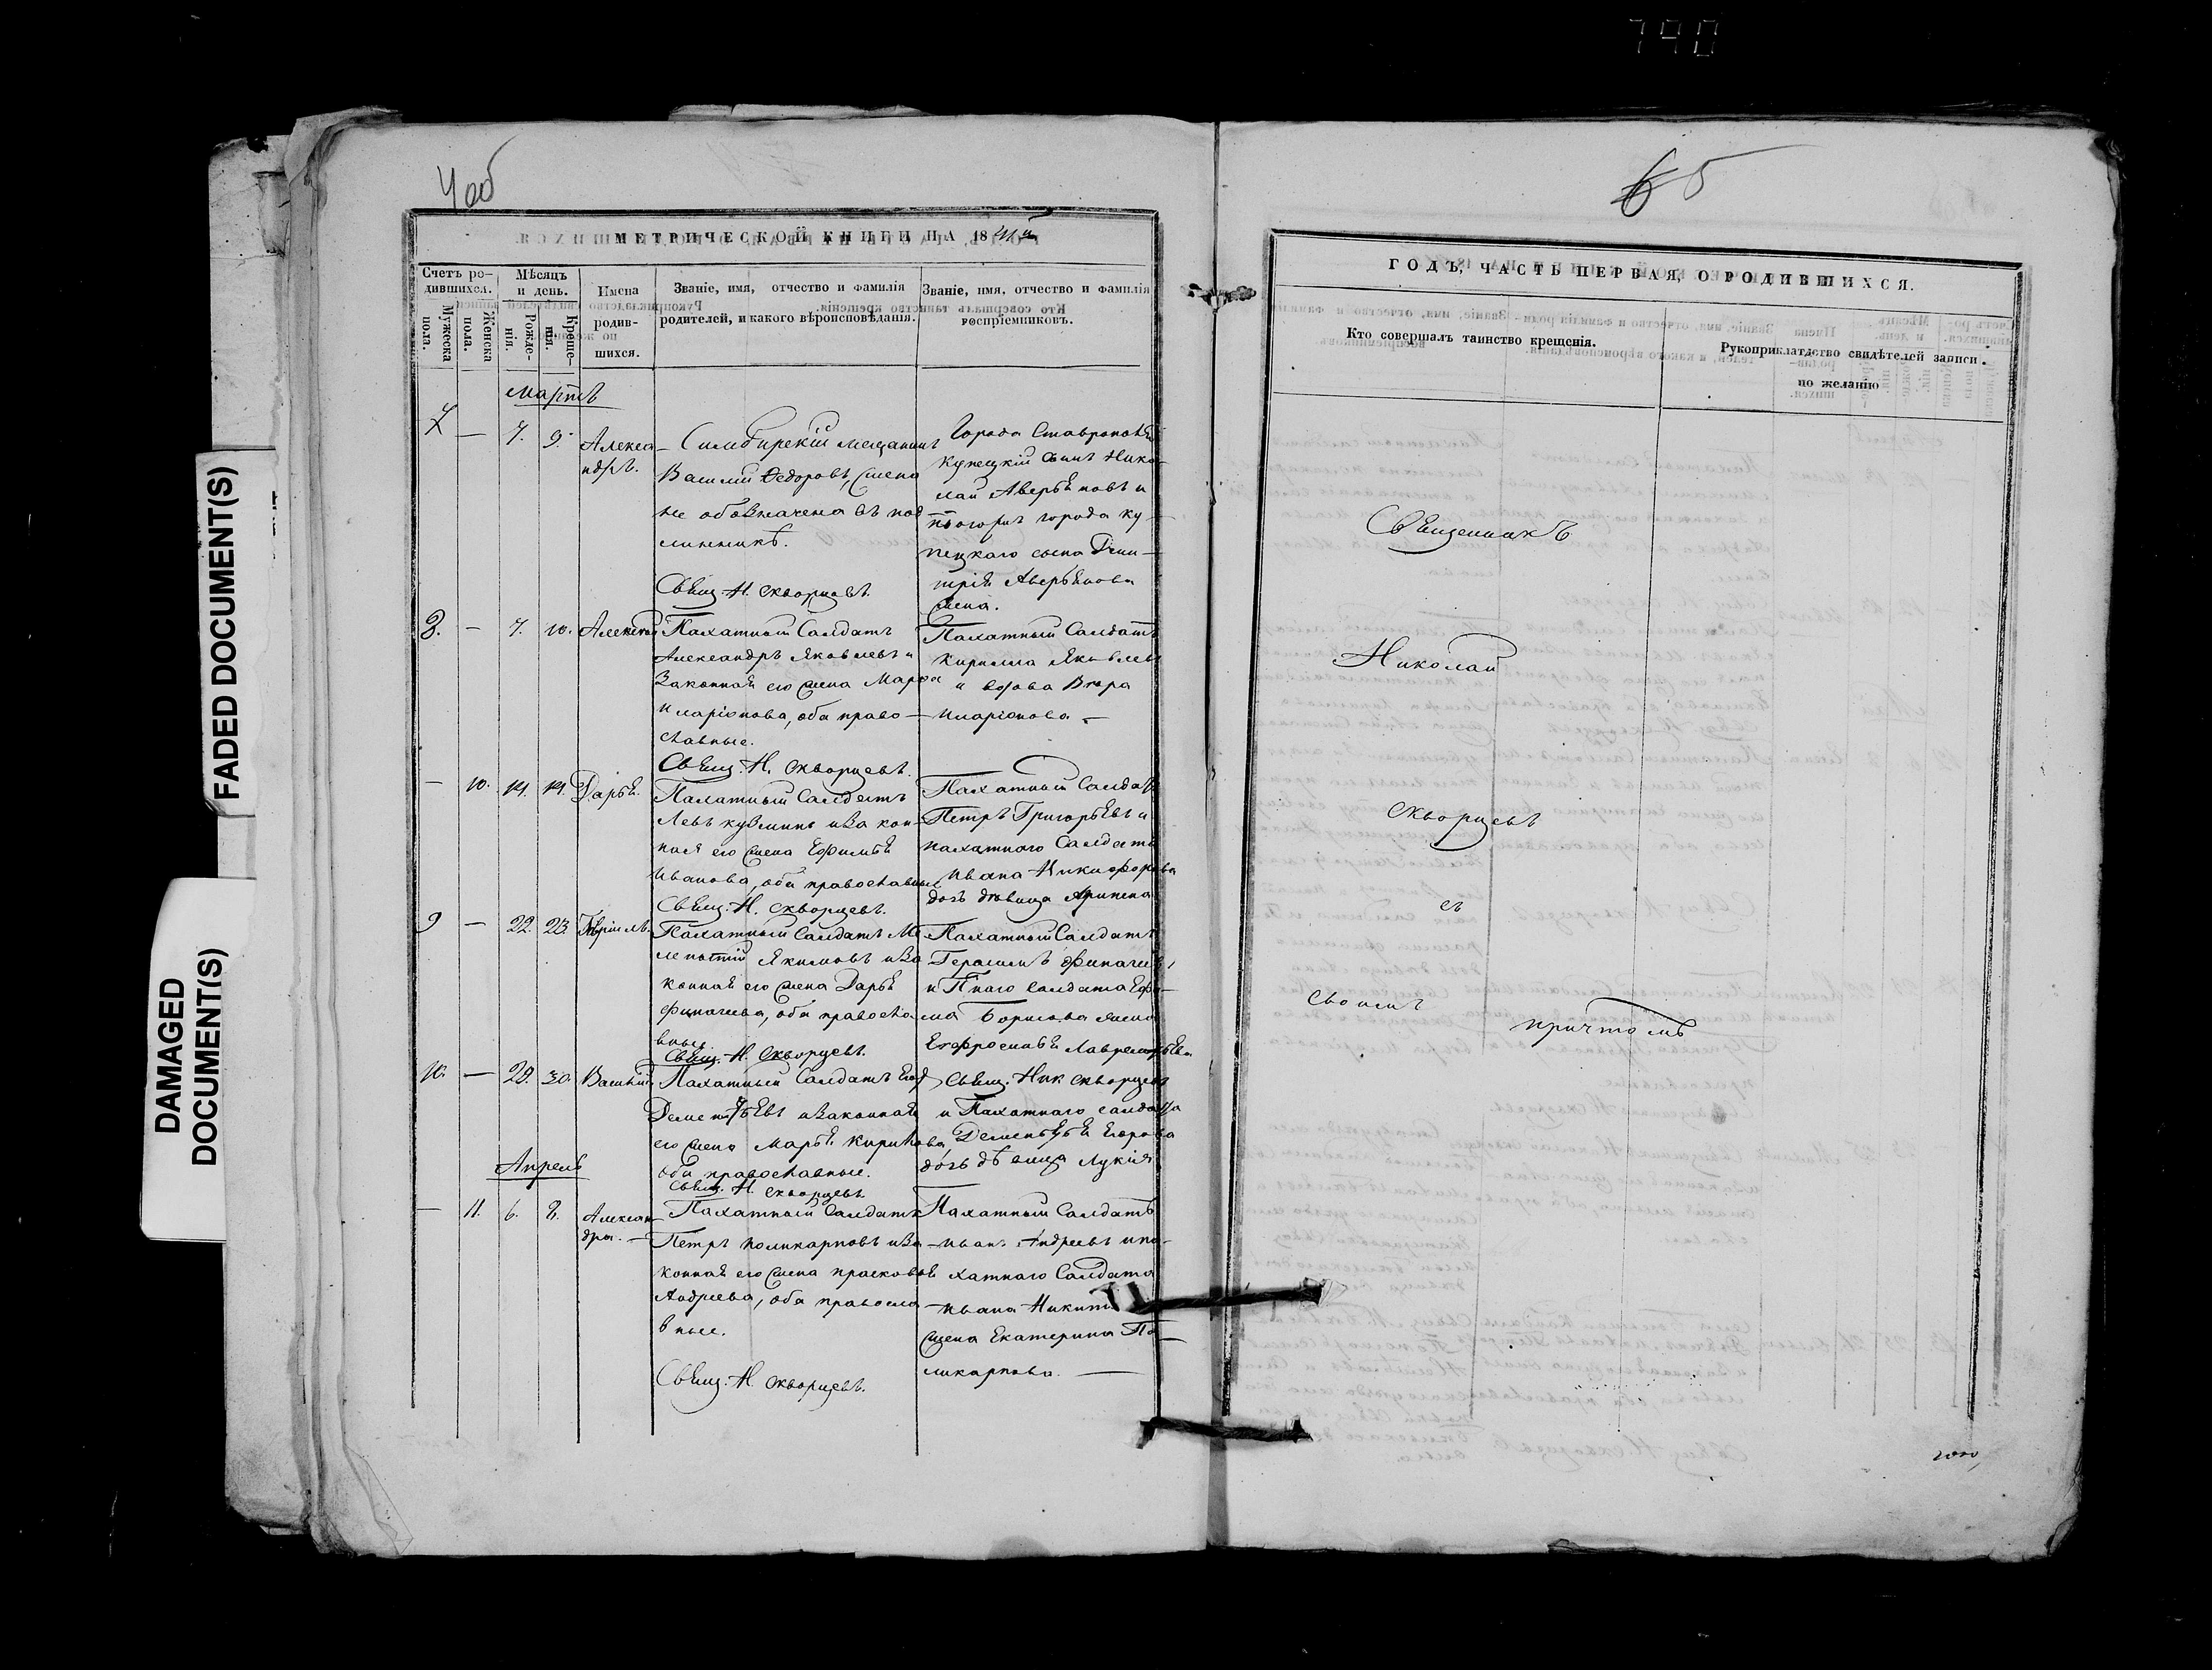 790
FADED DOCUMENT(S)
DAMAGED
DOCUMENT(S)
4 об
МЕТРИЧЕСКОЙ КНИГИ НА 18
Счетъ ро-
дившихся.
Мужеска
пола.
Женска
пола.
Мѣсяцъ
и день.
Рожде-
нія.
Креще-
нія.
Имена
родив-
шихся.
Званіе, имя, отчество и фамилія
родителей, и какого вѣроисповѣданія.
Званіе, имя, отчество и фамилія
воспріемниковъ.
Мартъ
7 — 7. 9. Алекса
ндръ.
Симбирскій мещанинъ
Василій Ѳедоровъ, жена
не обозначена въ под
линникѣ.
Свящ. Н. Скворцовъ.
Города Ставрополя
купецкій сынъ Нико-
лай Аверьяновъ и
тогожъ города ку-
пецкаго сына Дми-
трія Аверьянова
жена.
8. — 7. 10. Алексѣй
Пахатный Салдатъ
Александръ Яковлевъ и
Законная его жена Марѳа
Иларіонова, оба право-
славные.
Свящ. Н. Скворцевъ.
Пахатный Салдатъ
Кирилла Яковлевъ
и вдова Вѣра
Иларіонова —
— 10. 14. 14. Дарья.
Пахатный Салдатъ
Левъ Кузминъ и Закон-
ная его жена Ефимья
Иванова, оба православные
Свящ. Н. Скворцевъ.
Пахатный Салдатъ
Петръ Григорьевъ и
пахатного Салдата
Ивана Никифорова
дочь дѣвица Арипена
9 — 22. 23.
Пахатный Салдатъ Ме
лентій Якимовъ и За
конная его жена Дарья
Финагеева, оба правосла
вные.
Свящ. Н. Скворцевъ.
Пахатный Салдатъ
Герасимъ Финагеевъ
и П'наго Салдата Ефи-
ма Борисова жена
Евфросинья Лаврентьева
10. — 29. 30. Василій
Пахатный Салдатъ Егоръ
Дементьевъ и Законная
его жена Марья Кирилова
оба православные.
Свящ. Н. Скворцевъ
Свящ. Ник Скворцевъ
и Пахатнаго салдата
Дементья Егорова
дочь дѣвица Лукія
Апрель
— 11. 6. 8. Алексан
дра. —
Пахатный Салдатъ
Петръ Поликарповъ и За-
конная его жена Прасковья
Андреева, оба правосла-
вные.
Свящ. Н. Скворцевъ.
Пахатный Салдатъ
Иванъ Андреевъ и па-
хатнаго Салдата
Ивана Никити
жена Екатерина По-
ликарпова. —
5
ГОДЪ, ЧАСТЬ ПЕРВАЯ, О РОДИВШИХСЯ.
Кто совершалъ таинство крещенія.
Рукоприкладство свидѣтелей записи
по желанію
Священникъ
Николай
Скворцевъ
съ
своимъ
причтомъ